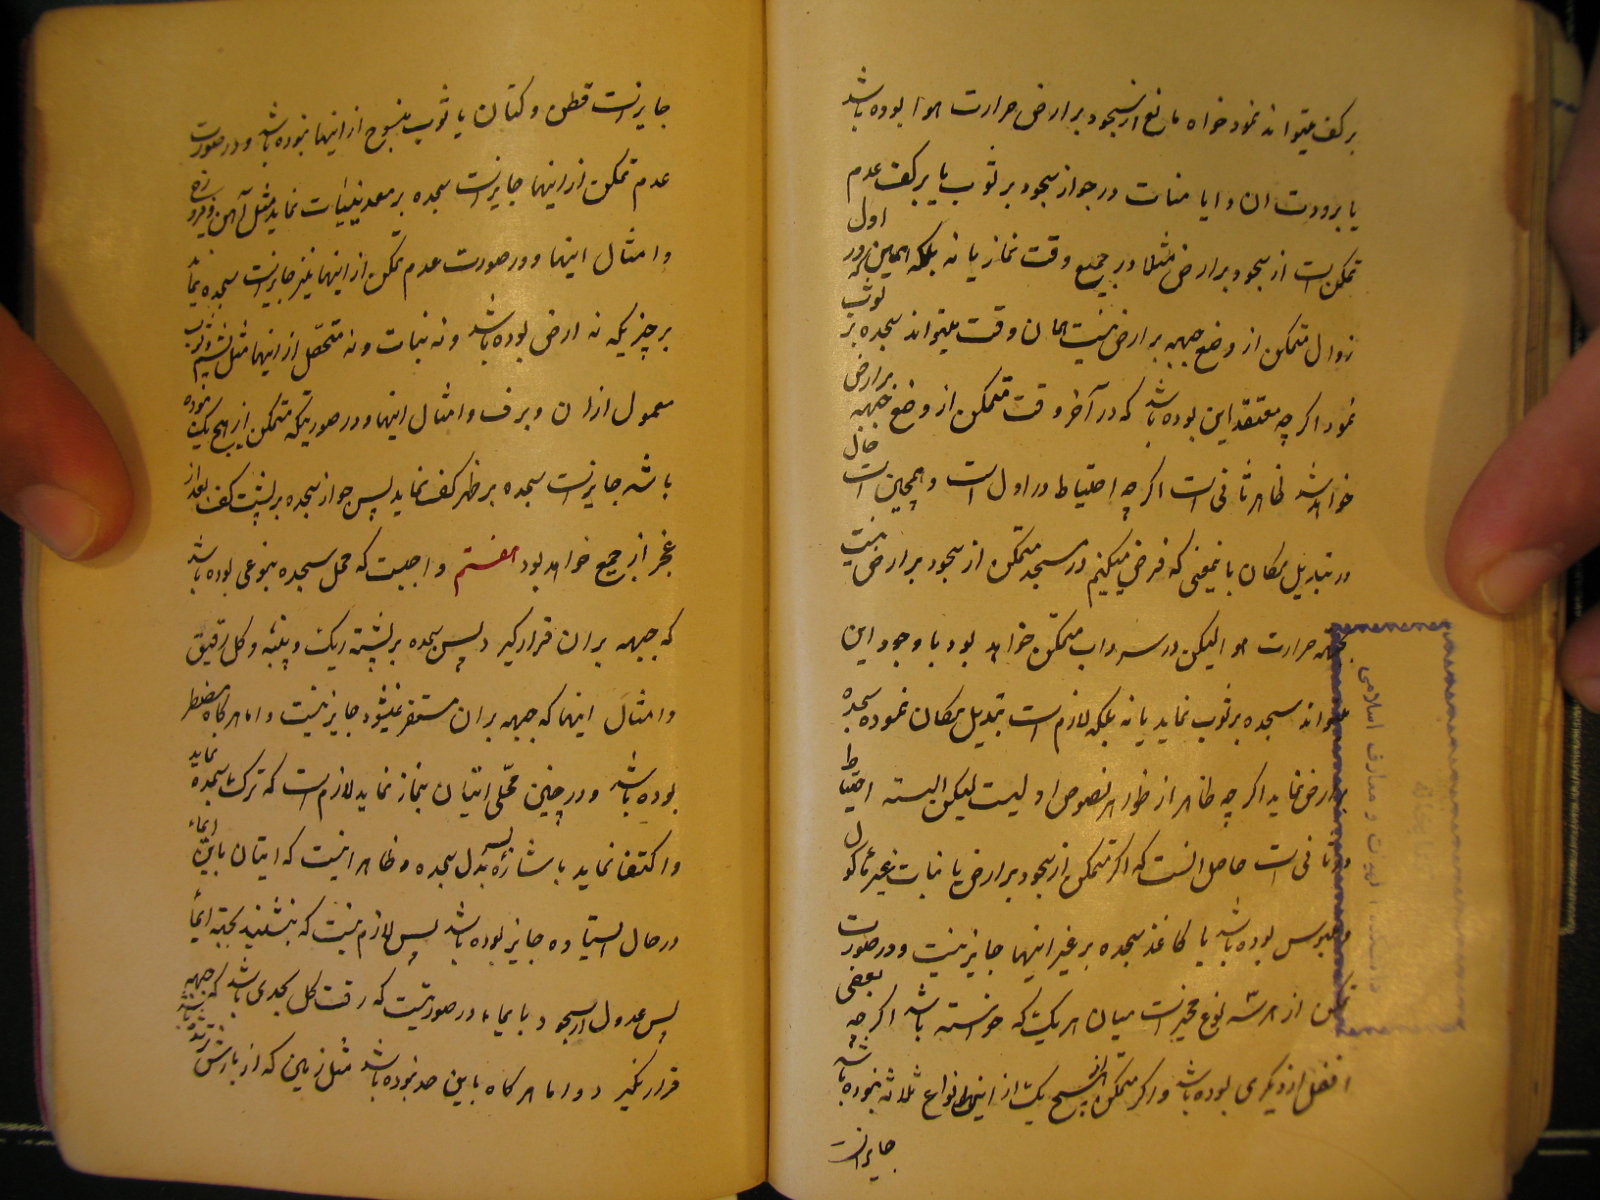 بر کف میتواند نمود خواه مانع از سجود بر ارض حرارت هوا بوده باشد
یا برودت ان و ایا مناط در جواز سجود بر ثوب یا بر کف عدم
تمکن است از سجود بر ارض مثلا در جمیع وقت نماز یا نه بلکه همین که در اول
زوال متمکن از وضع جبهه بر ارض نیست همان وقت میتواند سجده بر ثوب
نمود اگر چه معتقد این بوده باشد که در آخر وقت متمکن از وضع جبهه بر ارض
خواهد شد ظاهر ثانی است اگر چه احتیاط در اول است و همچنین است حال
در تبدیل مکان باینمعنی که فرض میکنیم در مسجد متمکن از سجود بر ارض نیست
بجهة حرارت هوا لیکن در سرداب متمکن خواهد بود با وجود این
میتواند سجده بر ثوب نماید یا نه بلکه لازم است تبدیل مکان نموده سجده
بر ارض نماید اگر چه ظاهر از ظواهر نصوص اولیست لیکن البته احتیاط
در ثانی است حاصل انست که اگر متمکن از سجود بر ارض یا نبات غیر ماکول
و ملبوس بوده باشد یا کاغذ سجده بر غیر اینها جایز نیست و در صورت
تمکن از هر سه نوع مخیر است میان هر یک که خواسته باشد اگر چه بعضی
افضل از دیگری بوده باشد و اگر متمکن از هیچ یک از این انواع ثلاثه نبوده باشد
جایز است
جایز است قطن و کتان یا ثوب منسوج از اینها بوده باشد و در صورت
عدم تمکن از اینها جایز است سجده بر معدنیات نماید مثل آهن و فیروزه
و امثال اینها و در صورت عدم تمکن از اینها نیز جایز است سجده نماید
بر چیزیکه نه ارض بوده باشد و نه نبات و نه متحصل از اینها مثل پشم و ثوب
معمول از ان و برف و امثال اینها و در صورتیکه متمکن از هیچ یک نبوده
باشد جایز است سجده بر ظهر کف نماید پس جواز سجده بر پشت کف بعد از
عجز از جمیع خواهد بود هفتم واجبست که محل سجده بنوعی بوده باشد
که جبهه بر ان قرار گیرد پس سجده بر پشته ریک و پنبه و کل رقیق
و امثال اینها که جبهه بر ان مستقر نمیشود جایز نیست و اما هر کاه مضطر
بوده باشد و در چنین محلی اتیان بنماز نماید لازم است که ترک سجده نماید
و اکتفا نماید باشاره بسر بدل سجده و ظاهر اینست که اتیان باین ایماء
در حال ایستاده جایز بوده باشد پس لازم نیست که بنشیند بجهة ایماء
پس عدول از سجود بایماء در صورتیست که رقت کل بحدی باشد که جبهه
قرار نگیرد و اما هر کاه باین حد نبوده باشد مثل زمین که از بارش
دانشکده الهیات و معارف اسلامی
کتابخانه